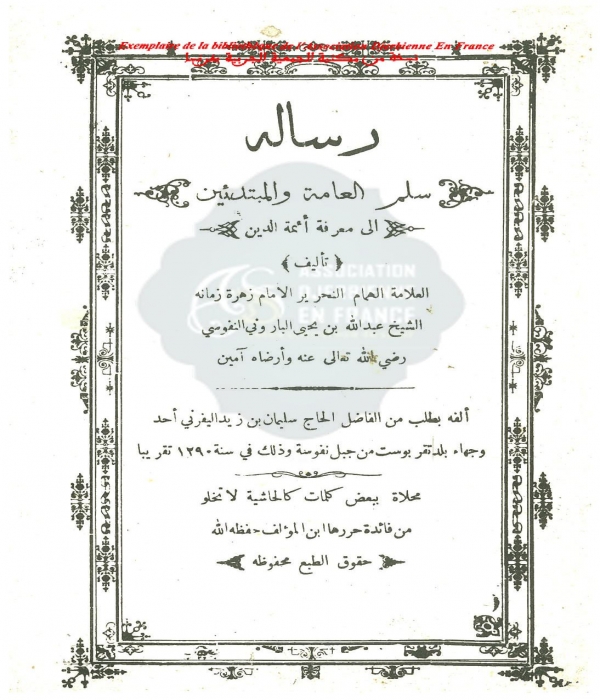 Exemplaire de la bibliothèque de l'Association Djerbienne En France
نسخة من مكتبة الجمعية الجربية بفرنسا
رساله
سلم العامة والمبتدئين
الى معرفة أئمة الدين
﴿ تأليف ﴾
العلامة الهمام النحرير الامام زهرة زمانه
الشيخ عبدالله بن يحيى الباروني النفوسي
رضي الله تعالى عنه وأرضاه آمين
ASSOCIATION
DJERBIENNE
EN FRANCE
ألفه بطلب من الفاضل الحاج سليمان بن زيد اليفرني أحد
وجهاء بلد تقربوست من جبل نفوسة وذلك في سنة ١٢٩٠ تقريبا
محلاة ببعض كلمات كالحاشية لا تخلو
من فائدة حررها ابن المؤلف حفظه الله
حقوق الطبع محفوظه